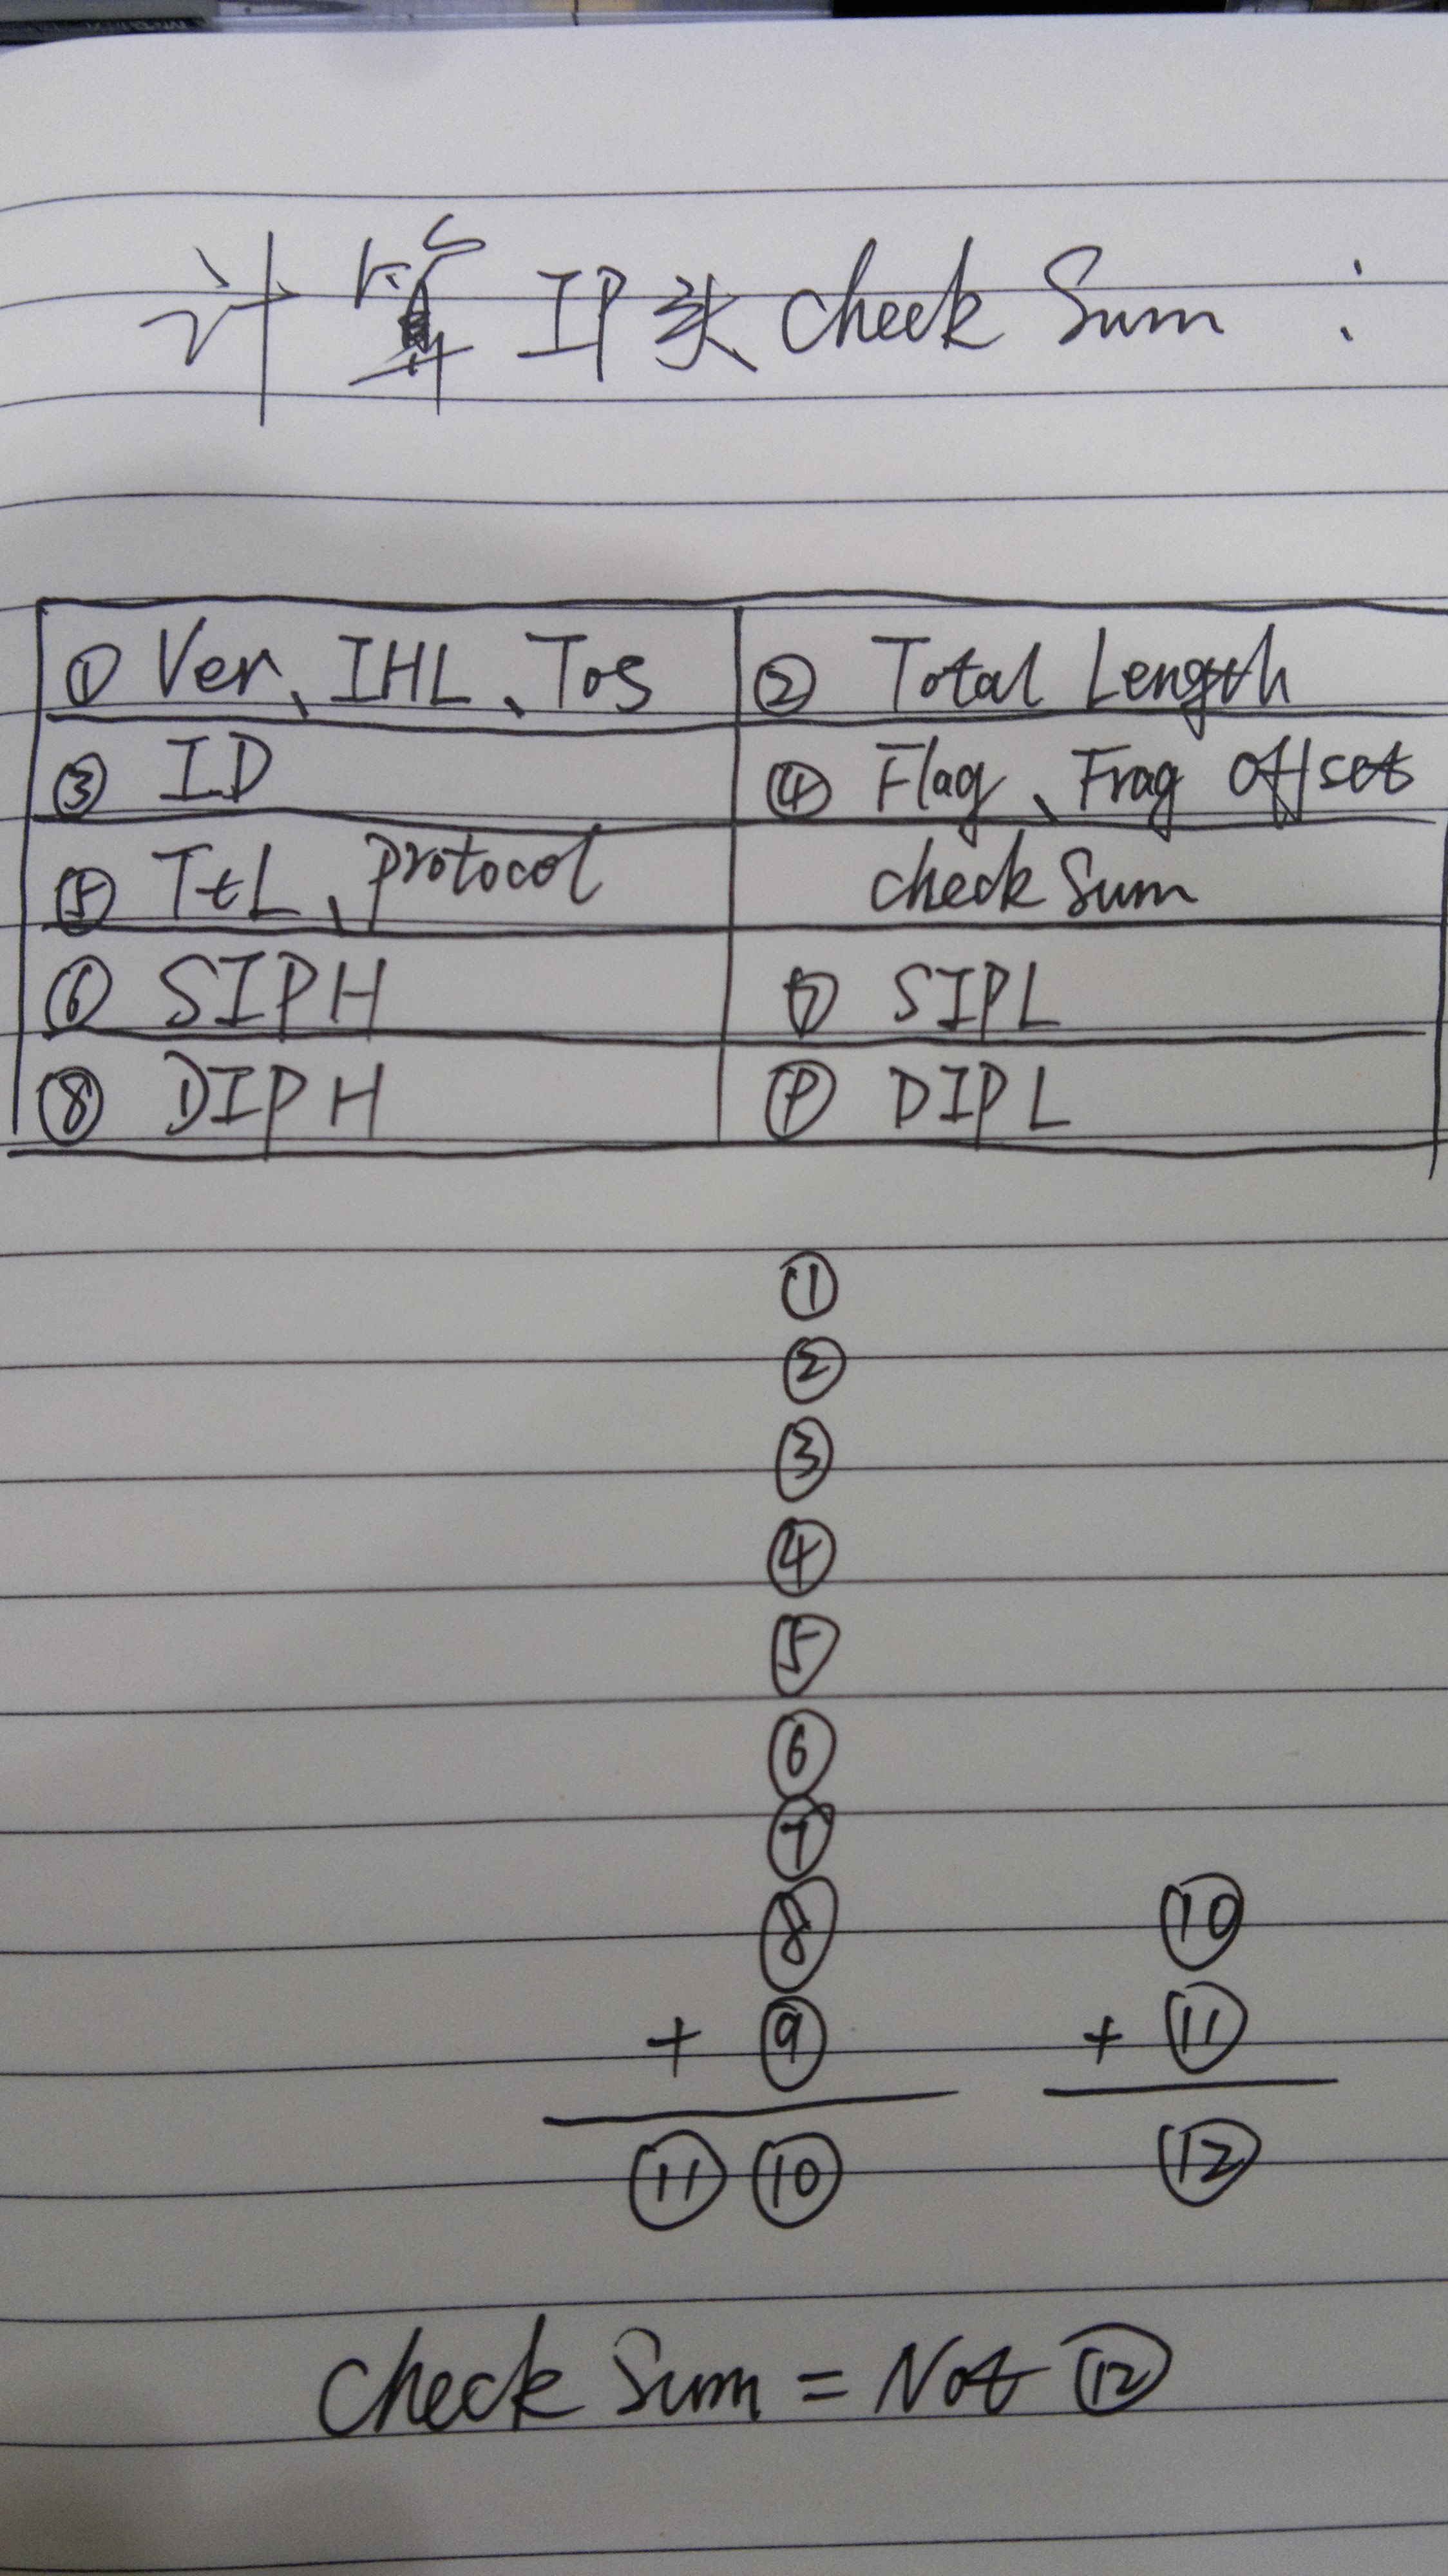 计算IP头 check Sum :
① Ver、IHL、Tos ② Total Length
③ ID ④ Flag、Frag offset
⑤ TtL、protocol check Sum
⑥ SIPH ⑦ SIPL
⑧ DIPH ⑨ DIPL
①
②
③
④
⑤
⑥
⑦
⑧ ⑩
+ ⑨ + ⑪
⑪ ⑩ ⑫
check Sum = Not ⑫